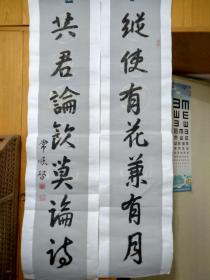 縱使有花兼有月
共君論飲莫論詩